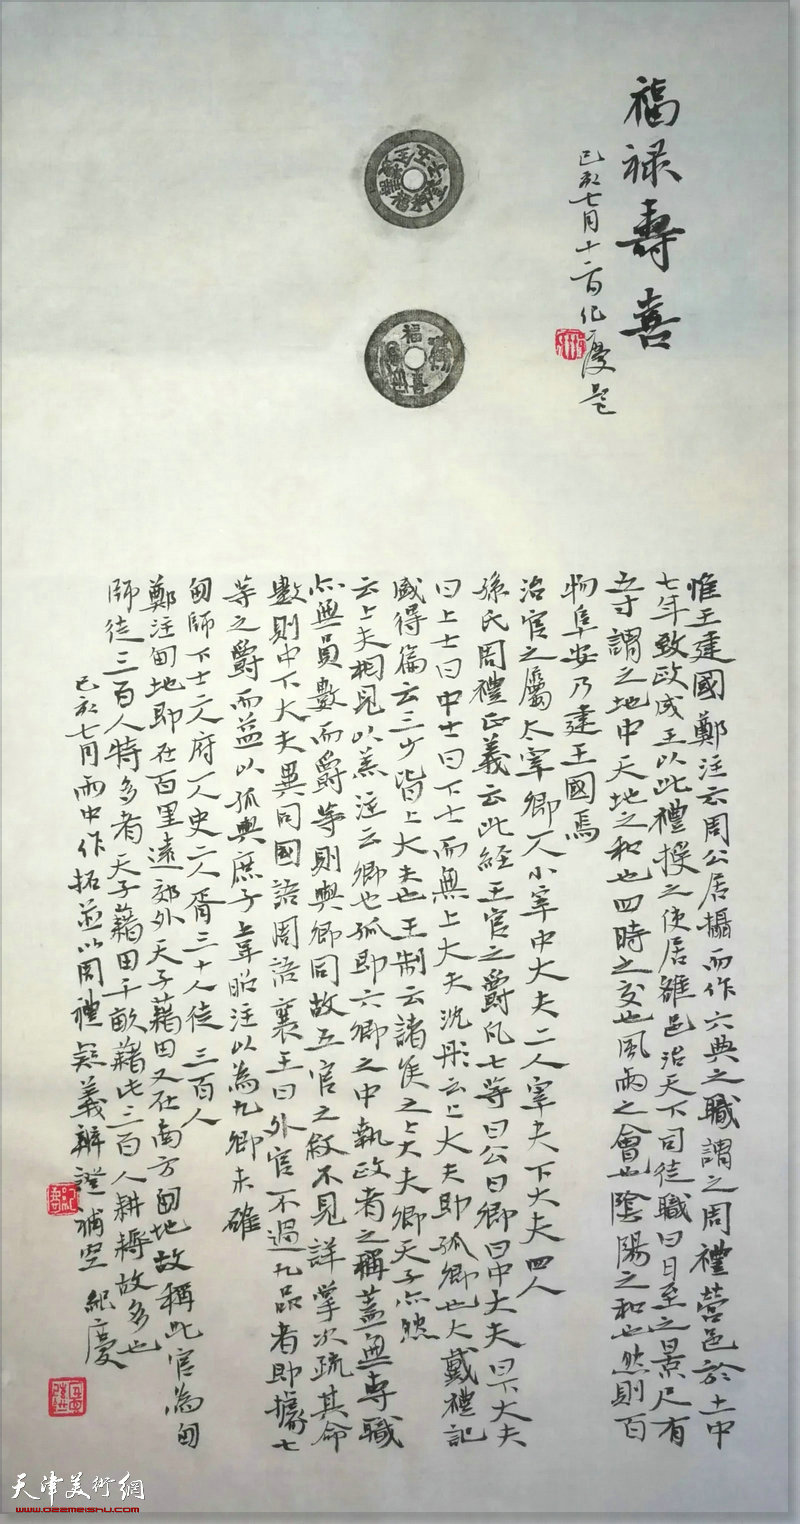 福祿壽喜
己亥七月十一百紀慶題
惟王建國鄭注云周公居攝而作六典之職謂之周禮營邑於土中
七年致政成王以此禮授之使居雒邑治天下司徒職曰日至之景尺有
五寸謂之地中天地之和也四時之交也風雨之會也陰陽之和也然則百
物阜安乃建王國焉
治官之屬大宰卿一人小宰中大夫二人宰夫下大夫四人
孫氏周禮正義云此經王官之爵凡七等曰公曰卿曰中大夫曰下大夫
曰上士曰中士曰下士而無上大夫沈彤云上大夫即孤卿也大戴禮記
盛得篇云三少皆上大夫也王制云諸侯之上大夫卿天子亦然
云上夫相見以羔注云卿也孤即六卿之中執政者之稱蓋無專職
亦無員數而爵等則與卿同故五官之敘不見詳掌次疏其命
數則中下大夫異同國語周語襄王曰外官不過九品者即據七
等之爵而益以孤與庶子上韋昭注以為九卿未確
甸師下士二人府一人史二人胥三十人徒三百人
鄭注甸地即在百里遠郊外天子藉田又在南方甸地故稱此官為甸
師徒三百人特多者天子藉田千畝藉此三百人耕耨故多也
己亥七月雨中作拓並以周禮疑義辨證補空 紀慶
天津美術網
www.022meishu.com